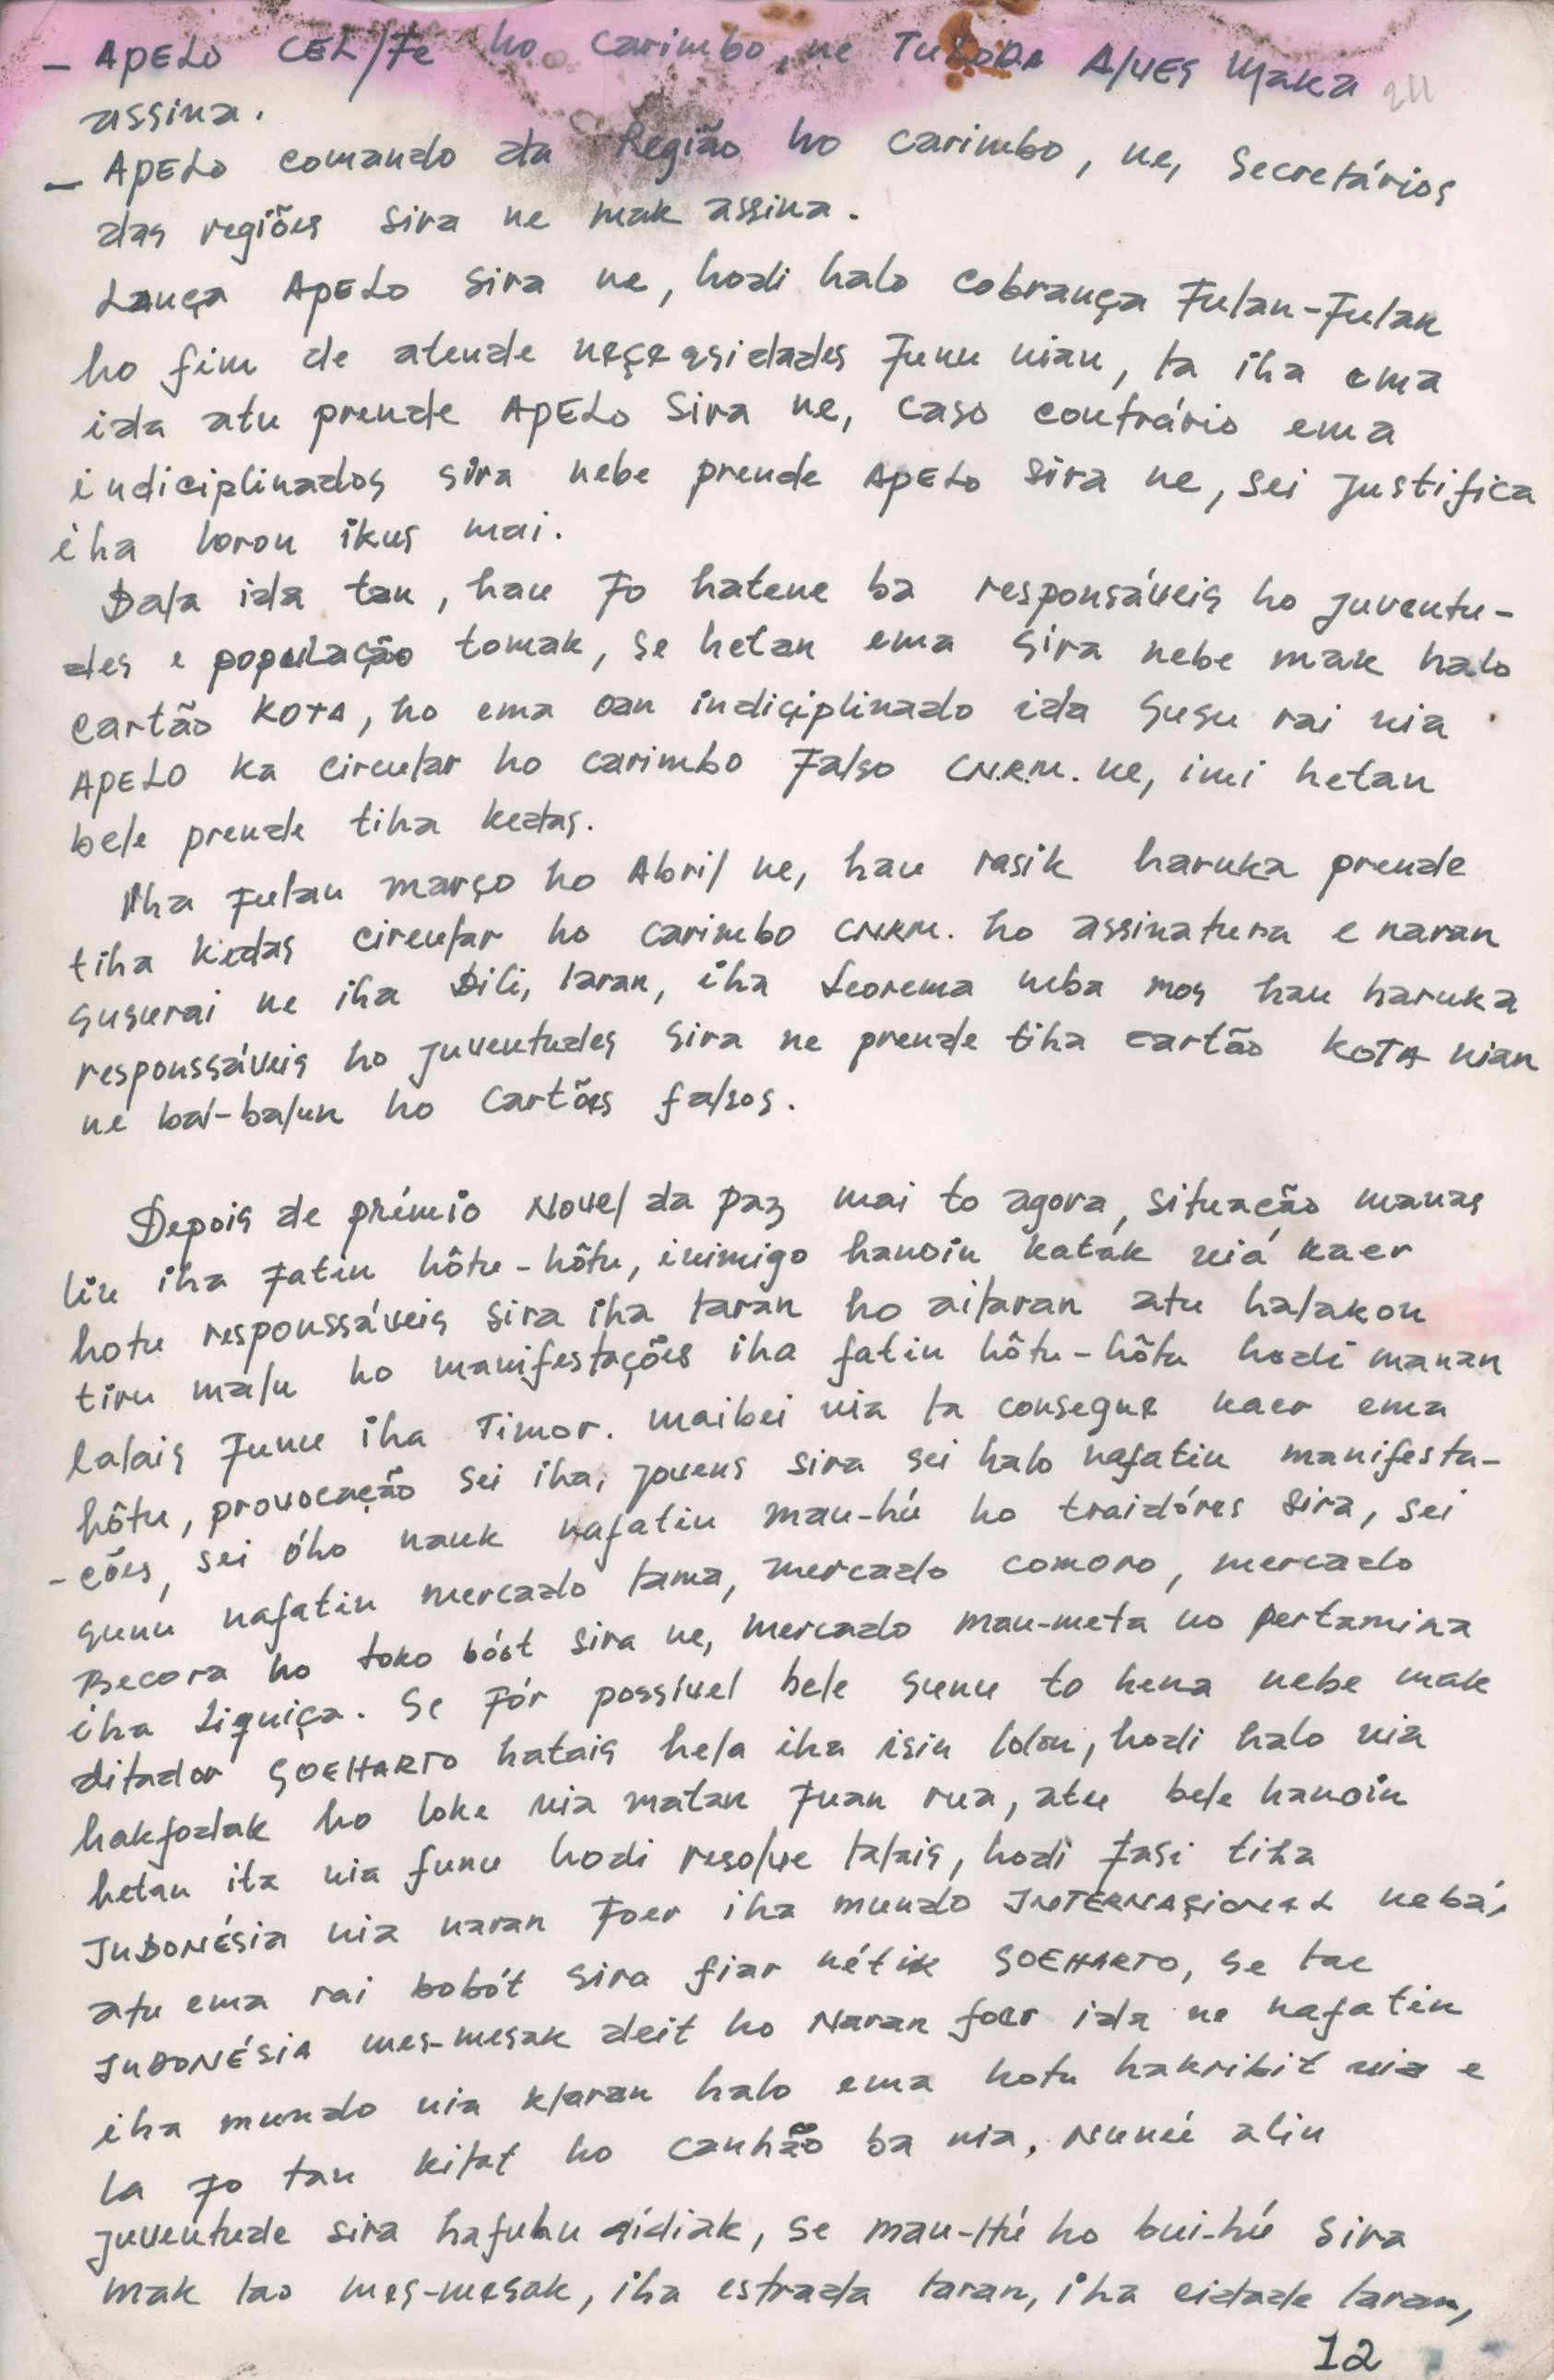 - APELO CEL/Fe ho carimbo, ne TULODA Alves Maka
assina.
- APELO comando da Região ho carimbo, ne, Secretários
das regiões sira ne mak assina.
Lança APELO sira ne, hodi halo cobrança Fulan-Fulan
ho fim de atende neçeqsidades Funu nian, ta iha ema
ida atu prende APELO sira ne, caso contrário ema
indiciplinados sira nebe prende APELO sira ne, sei justifica
iha loron ikus mai.
Dala ida tan, hau Fo hatene ba responsáveis ho juventu-
des e população tomak, se hetan ema sira nebe mak halo
cartão KOTA, ho ema oan indiçiplinado ida susu rai nia
APELO ka circular ho carimbo Falso CN.R.M. ne, imi hetan
bele prende tiha kedas.
Iha Fulan março ho Abril ne, hau rasik haruka prende
tiha kedas circular ho carimbo CNRM. ho assinatura e naran
susurai ne iha Dili, laran, iha Leorema neba mos hau haruka
responssáveis ho juventudes sira ne prende tiha cartão KOTA nian
ne bal-balun ho cartões falsos.
Depois de prémio Novel da Paz mai to agora, situação manas
liu iha Fatin hôtu-hôtu, inimigo hanoin katák niá kaer
hotu responssáveis sira iha laran ho ailaran atu halakon
tiru malu ho manifestações iha fatin hôtu-hôtu hodi manan
lalais Funu iha Timor. maibei nia la consegue kaer ema
hôtu, provocação sei iha, jovens sira sei halo nafatin manifesta-
-ções, sei óho nauk nafatin mau-hú ho traidóres sira, sei
sunu nafatin mercado lama, mercado comoro, mercado
Becora ho toko bóót sira ne, mercado mau-meta no pertamina
iha Liquiça. Se Fór possível bele sunu to hena nebe mak
ditador SOEHARTO hatais hela iha isin lolon, hodi halo nia
hakfodak ho loke nia matan Fuan rua, atu bele hanoin
hetan ita nia funu hodi resolve lalais, hodi Fasi tiha
INDONÉSIA nia naran Foer iha mundo INTERNAÇIONAL nebá,
atu ema rai bobót sira fiar nétik SOEHARTO, se lae
INDONÉSIA mes-mesak deit ho Naran foer ida ne nafatin
iha mundo nia klaran halo ema hotu hakribit nia e
la Fo tan kilat ho canhão ba nia, Nuneé alin
juventude sira hafuhu didiak, se mau-Hú ho bui-hú sira
mak lao mes-mesak, iha estrada laran, iha cidade laran,
12